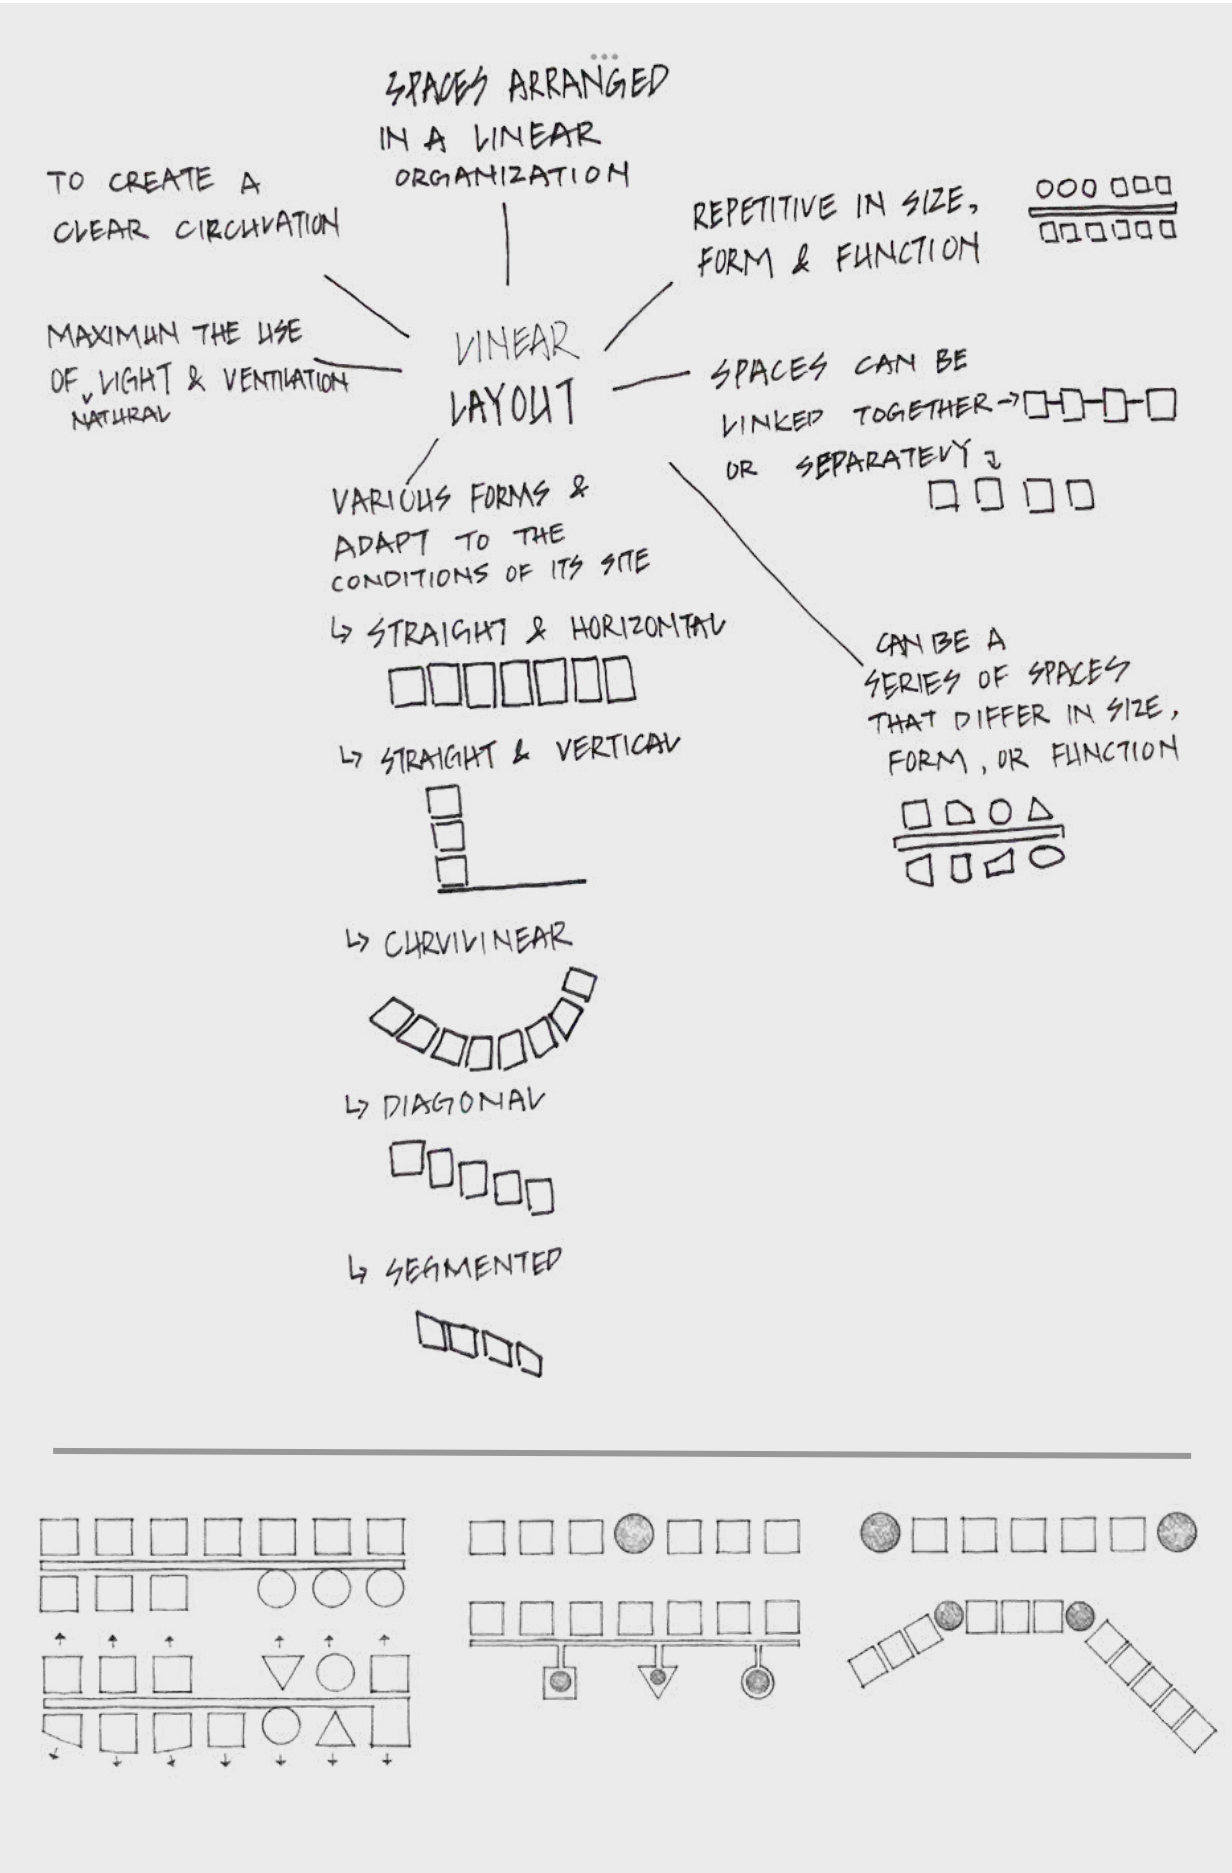 SPACES ARRANGED
IN A LINEAR
ORGANIZATION
TO CREATE A
CLEAR CIRCULATION
MAXIMUN THE USE
OF LIGHT & VENTILATION
NATURAL
LINEAR
LAYOUT
REPETITIVE IN SIZE,
FORM & FUNCTION
SPACES CAN BE
LINKED TOGETHER →
OR SEPARATELY
VARIOUS FORMS &
ADAPT TO THE
CONDITIONS OF ITS SITE
↳ STRAIGHT & HORIZONTAL
↳ STRAIGHT & VERTICAL
↳ CURVILINEAR
↳ DIAGONAL
↳ SEGMENTED
CAN BE A
SERIES OF SPACES
THAT DIFFER IN SIZE,
FORM, OR FUNCTION